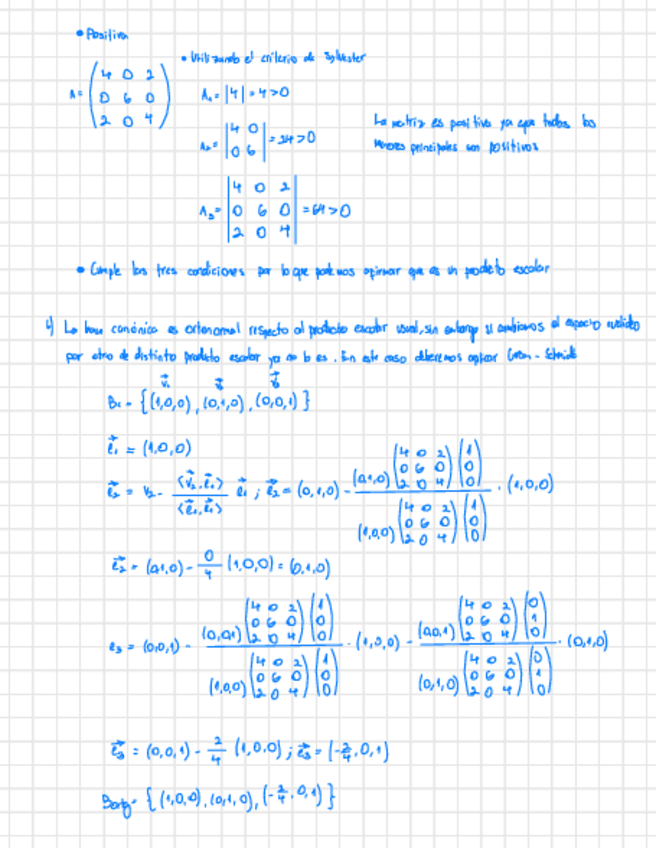 • Positiva
• Utilizando el criterio de Sylvester
A = (4 0 2 / 0 6 0 / 2 0 4)
A₁ = |4| = 4 > 0
A₂ = |4 0 / 0 6| = 24 > 0
La matriz es positiva ya que todos los
menores principales son positivos
A₃ = |4 0 2 / 0 6 0 / 2 0 4| = 64 > 0
• Cumple las tres condiciones por lo que podemos afirmar que es un producto escalar
La base canónica es ortonormal respecto al producto escalar usual, sin embargo si cambiamos el espacio euclídeo
por otro de distinto producto escalar ya no lo es. En este caso deberemos aplicar Gram-Schmidt
Bc = {(1,0,0), (0,1,0), (0,0,1)}
e₁ = (1,0,0)
e₂ = v₂ - <v₂,e₁> / <e₁,e₁> e₁ ; e₂ = (0,1,0) - (0,1,0) (4 0 2 / 0 6 0 / 2 0 4) (1 / 0 / 0) / (1,0,0) (4 0 2 / 0 6 0 / 2 0 4) (1 / 0 / 0) · (1,0,0)
e₂ = (0,1,0) - 0/4 (1,0,0) = (0,1,0)
e₃ = (0,0,1) - (0,0,1) (4 0 2 / 0 6 0 / 2 0 4) (1 / 0 / 0) / (1,0,0) (4 0 2 / 0 6 0 / 2 0 4) (1 / 0 / 0) · (1,0,0) - (0,0,1) (4 0 2 / 0 6 0 / 2 0 4) (0 / 1 / 0) / (0,1,0) (4 0 2 / 0 6 0 / 2 0 4) (0 / 1 / 0) · (0,1,0)
e₃ = (0,0,1) - 2/4 (1,0,0) ; e₃ = (-2/4, 0, 1)
Bortg = {(1,0,0), (0,1,0), (-2/4, 0, 1)}